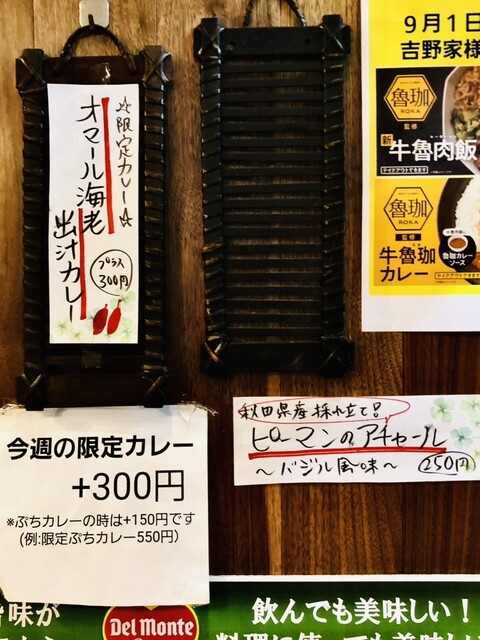 ☆限定カレー☆
オマール海老
出汁カレー
プラス
300円
今週の限定カレー
+300円
※ぷちカレーの時は+150円です
(例:限定ぷちカレー550円)
秋田県産採れ立て!!
ピーマンのアチャール
〜バジル風味〜
250円
9月1日
吉野家様
魯珈
ROKA
監修
新
牛魯肉飯
テイクアウトできます
魯珈
ROKA
監修
牛魯珈
カレー
魯珈カレー
ソース
テイクアウトできます
味が
Del Monte
飲んでも美味しい!
料理に使っても美味し